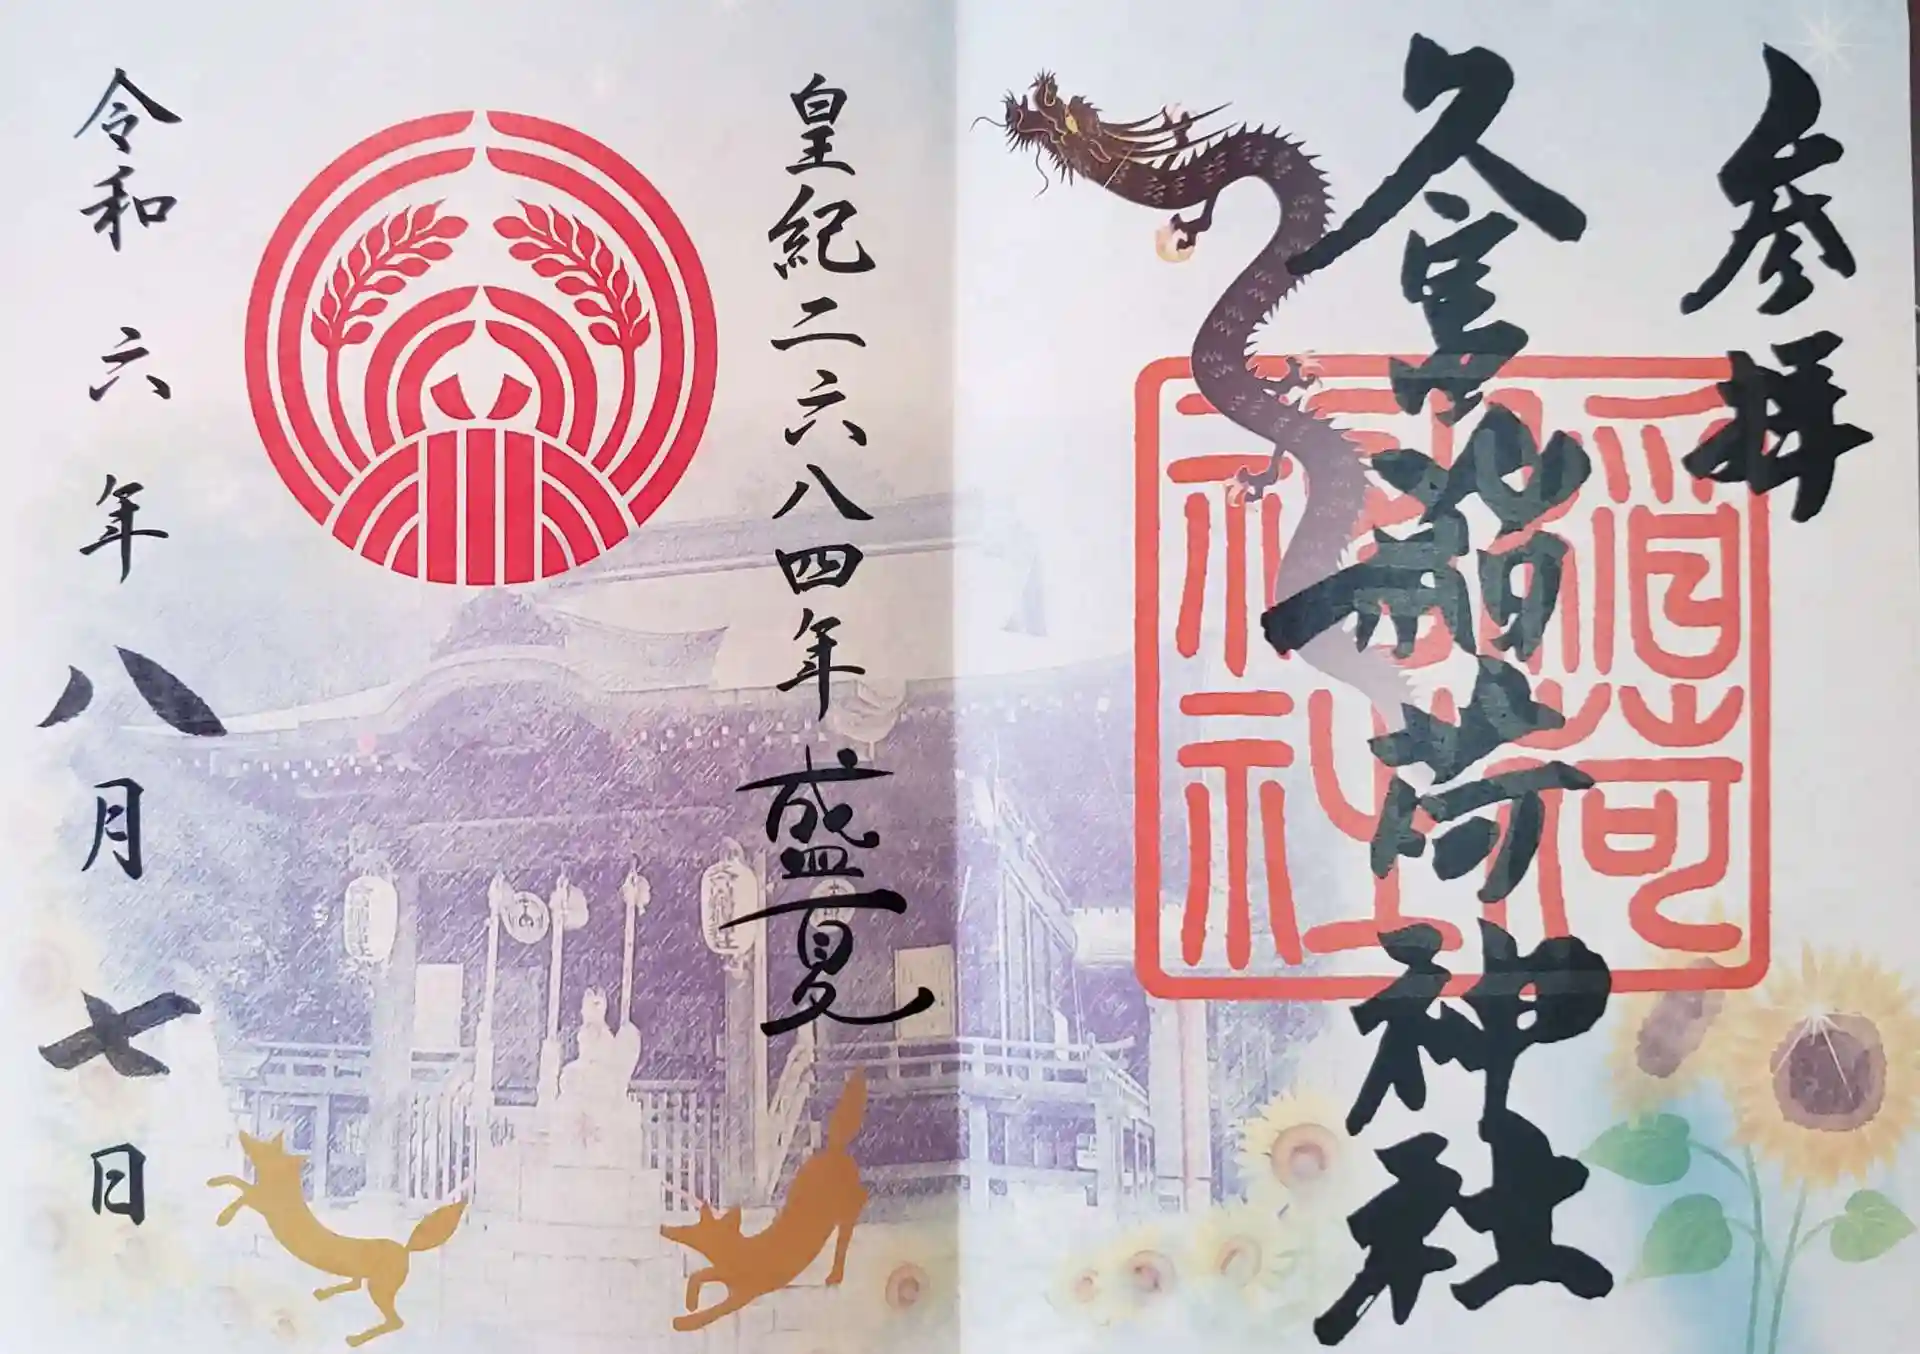 参拝
久富稲荷神社
稲荷
神社
皇紀二六八四年 盛夏
令和六年八月七日